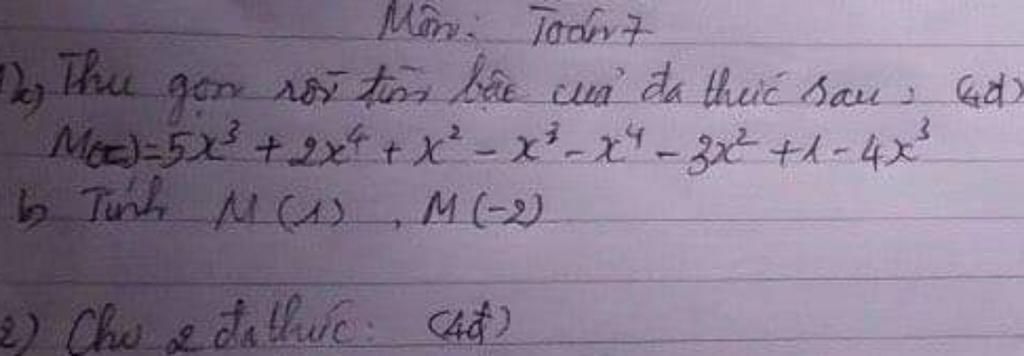 Môn: Toán 7
1) a, Thu gọn rồi tìm bậc của đa thức sau: (4đ)
M(x)=5x³ + 2x⁴ + x² - x³ - x⁴ - 3x² + 1 - 4x³
b, Tính M(1), M(-2)
2) Cho 2 đa thức: (4đ)